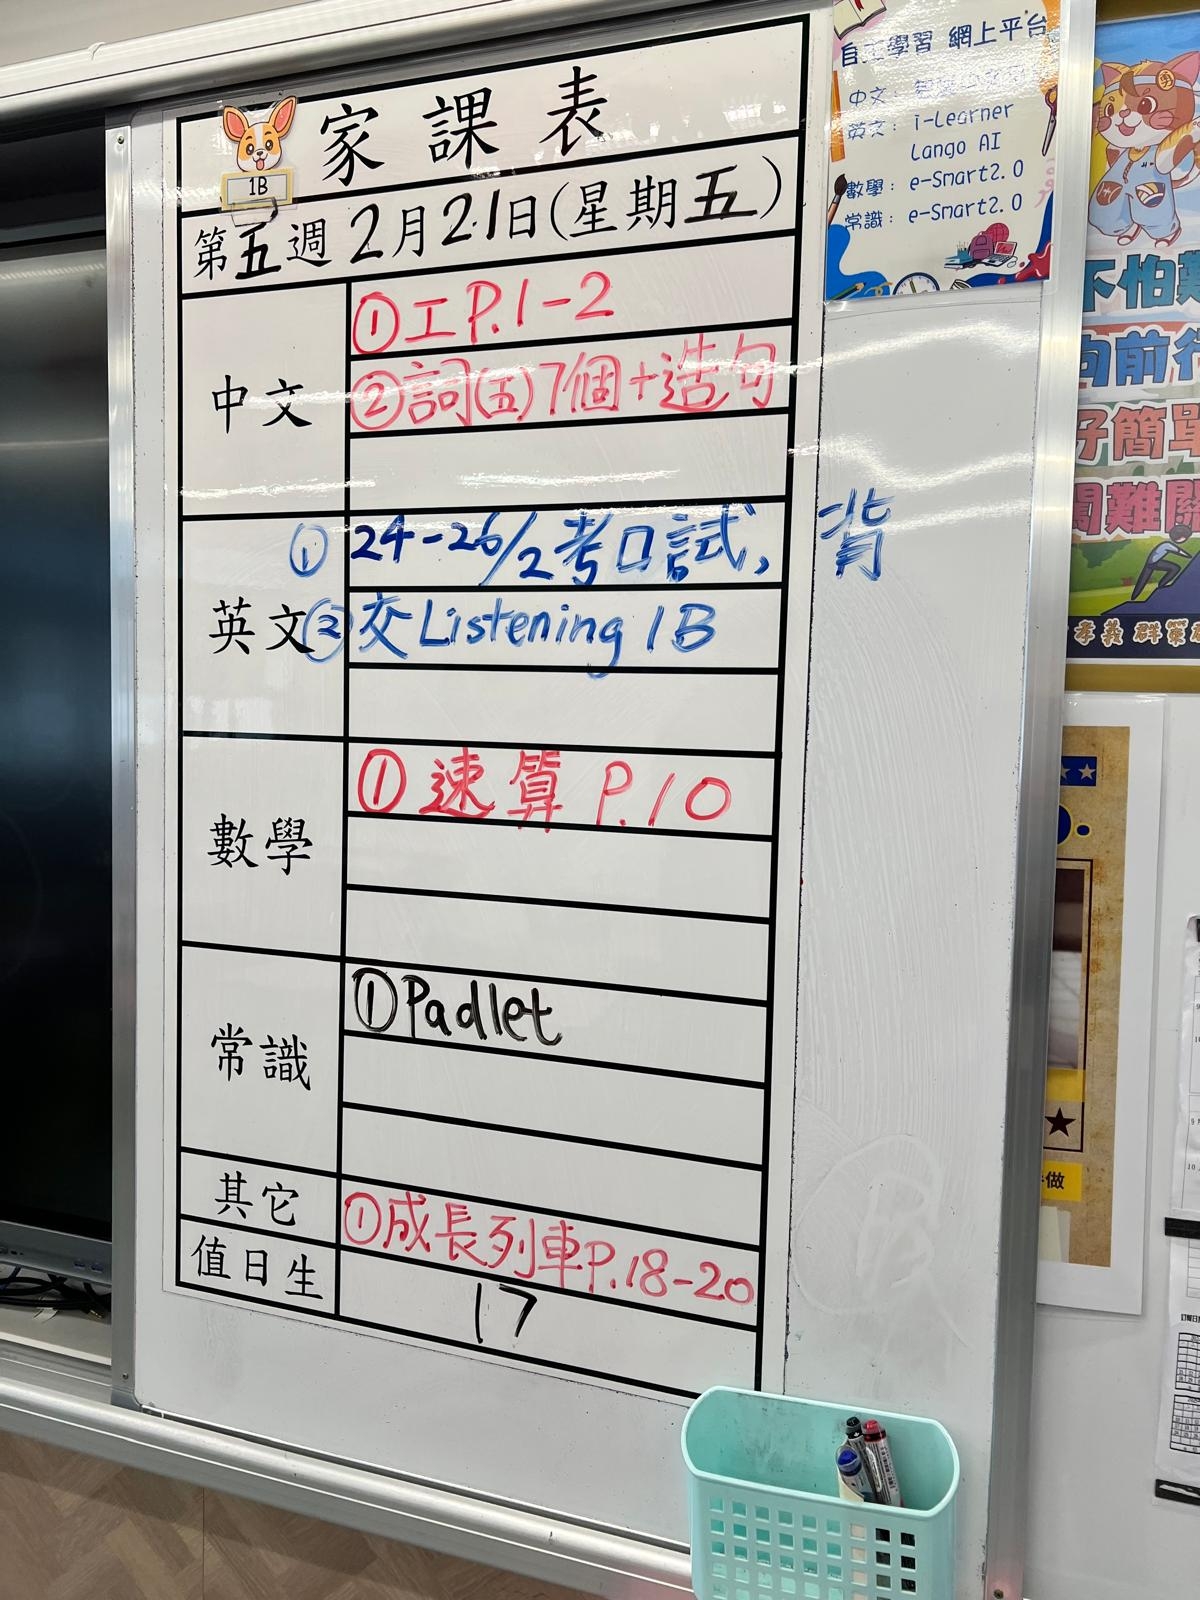 家課表
1B
第五週2月21日(星期五)
中文
①工P.1-2
②詞(五)7個+造句
英文
① 24-26/2考口試, 背
②交Listening 1B
數學
①速算 P.10
常識
①Padlet
其它
①成長列車P.18-20
值日生
17
自主學習 網上平台
中文:
英文: i-Learner
Lango AI
數學: e-Smart2.0
常識: e-Smart2.0
不怕難
向前行
好簡單
闖難關
孝義群
做